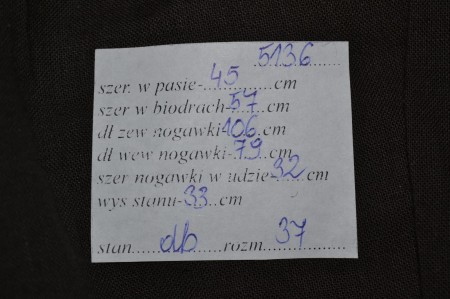 5136
szer. w pasie-45cm
szer w biodrach-57cm
dł zew nogawki-106cm
dł wew nogawki-79cm
szer nogawki w udzie-32cm
wys stanu-33cm
stan db rozm 37